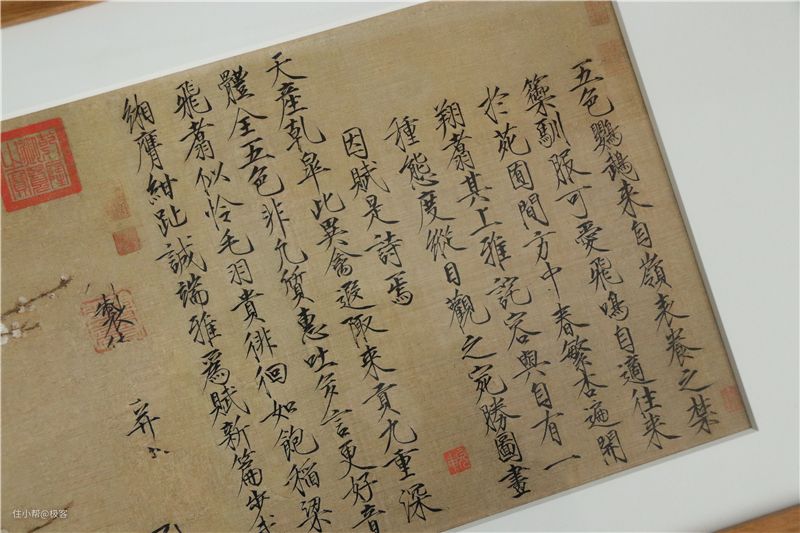 五色鸚鵡来自嶺表養之禁
籞馴服可愛飛鳴自適往来
於苑囿間方中春繁杏遍開
翔翥其上雅詫容與自有一
種態度縱目觀之宛勝圖畫
因賦是詩焉
天產乾皋此異禽遐陬来貢九重深
體全五色非凡質惠吐多言更好音
飛翥似怜毛羽貴徘徊如飽稻粱
緗膺紺趾誠端雅爲賦新篇步
製
并
住小帮@极客